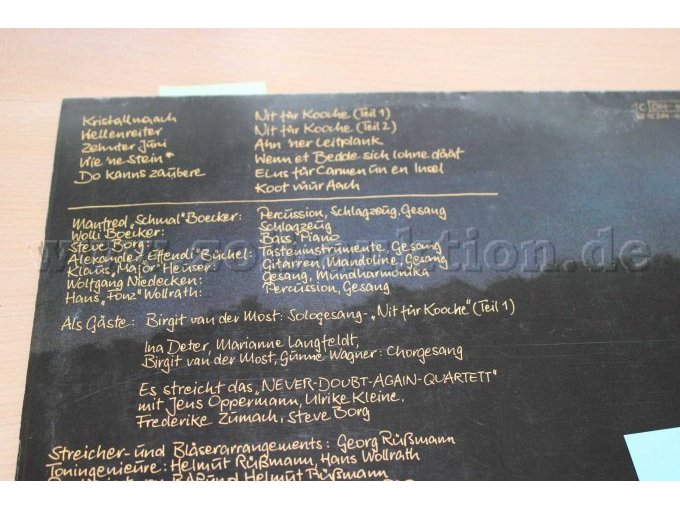 Kristallnaach
Wellenreiter
Zehnter Juni
Wie 'ne Stein*
Do kanns zaubere
Nit für Kooche (Teil 1)
Nit für Kooche (Teil 2)
Ahn 'ner Leitplank
Wenn et Bedde sich lohne däät
Eins für Carmen un en Insel
Koot vüür Aach
Manfred „Schmal" Boecker: Percussion, Schlagzeug, Gesang
Wolli Boecker: Schlagzeug
Steve Borg: Bass, Piano
Alexander „Effendi" Büchel: Tasteninstrumente, Gesang
Klaus „Major" Heuser: Gitarren, Mandoline, Gesang
Wolfgang Niedecken: Gesang, Mundharmonika
Hans „Fonz" Wollrath: Percussion, Gesang
Als Gäste: Birgit van der Most: Sologesang-„Nit für Kooche" (Teil 1)
Ina Deter, Marianne Langfeldt,
Birgit van der Most, Günne Wagner: Chorgesang
Es streicht das „NEVER-DOUBT-AGAIN-QUARTETT"
mit Jens Oppermann, Ulrike Kleine,
Frederike Zumach, Steve Borg
Streicher- und Bläserarrangements: Georg Rüßmann
Toningenieure: Helmut Rüßmann, Hans Wollrath
von BAP und Helmut Rüßmann